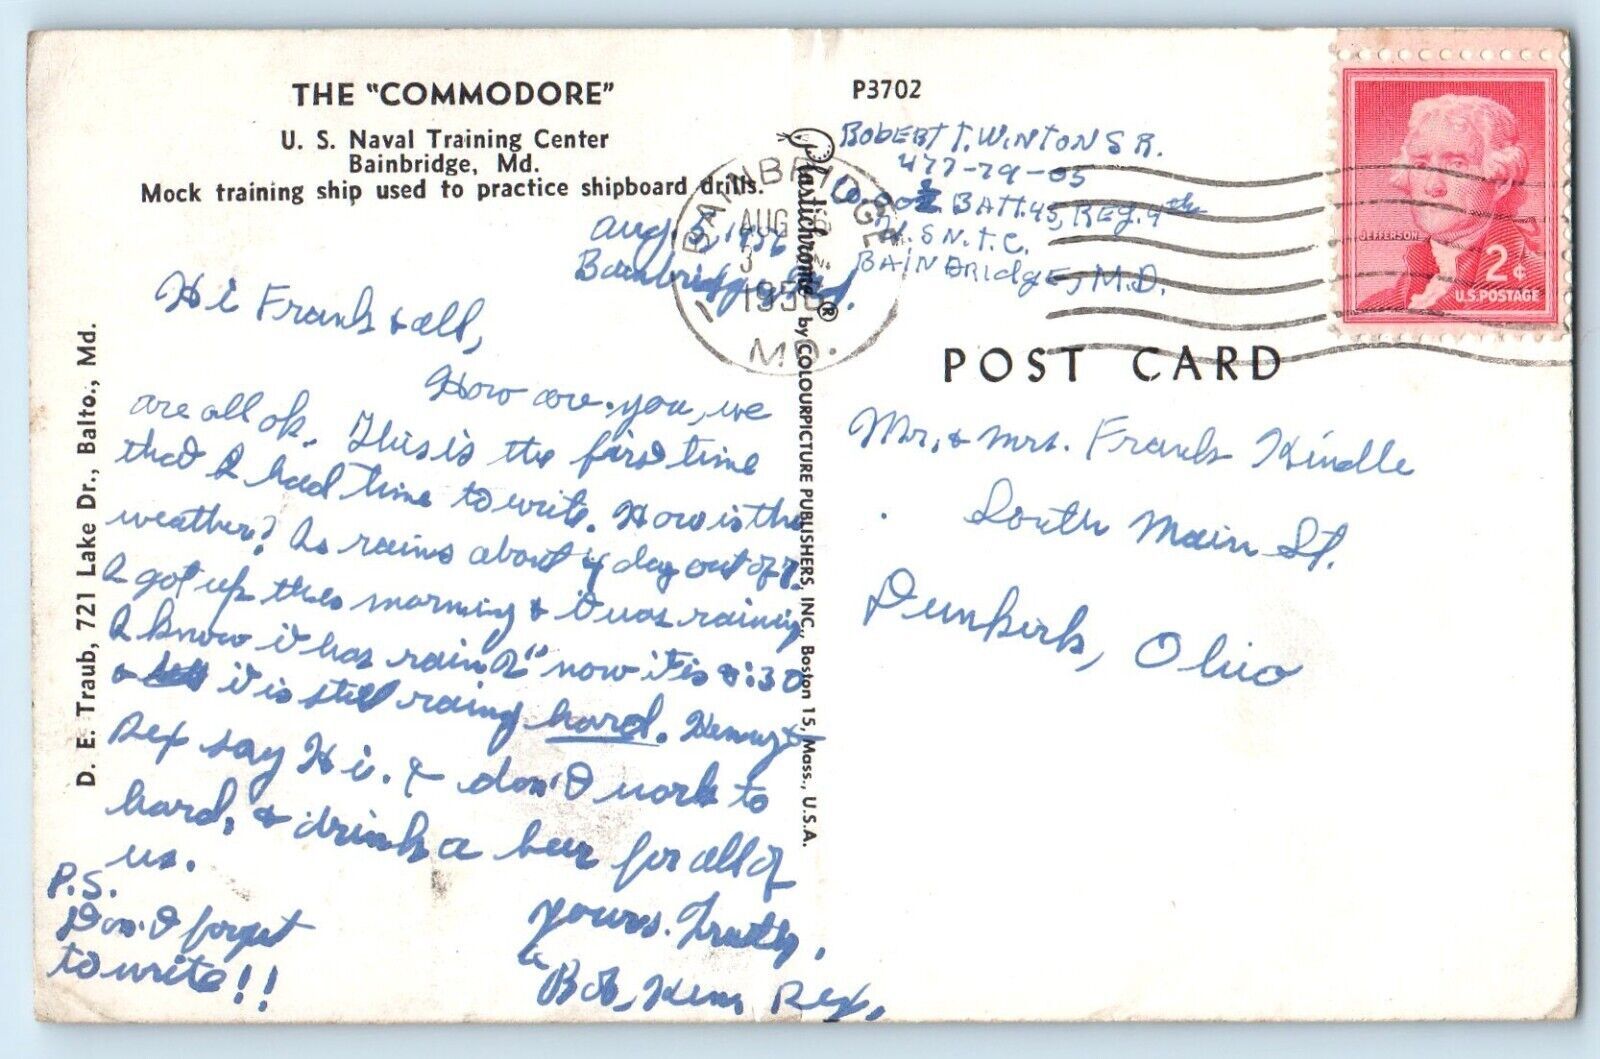 THE "COMMODORE"
U. S. Naval Training Center
Bainbridge, Md.
Mock training ship used to practice shipboard drills.
Aug. 5, 1956
Bainbridge, Md.
Hi Frank & all,
How are you, we
are all ok. This is the first time
that I had time to write. How is the
weather? Is rains about 4 day out of 7.
I got up this morning & it was raining
I know it has rain 2" now it is 8:30
& it is still raing hard. Henry &
Rex say Hi. & don't work to
hard, & drink a beer for all of
us.
yours. Truthy,
Bob, Rex,
P.S.
Don't forget
to write!!
D. E. Traub, 721 Lake Dr., Balto., Md.
Plastichrome® by COLOURPICTURE PUBLISHERS, INC., Boston 15, Mass., U.S.A.
P3702
ROBERT T. WINTON S R.
477-79-05
Co. BATT. 43, REG. 4th
U.S N.T.C.
BAINBRIdgE, M.D.
BAINBRIDGE
AUG
3
195
MD.
JEFFERSON
2¢
U.S. POSTAGE
POST CARD
Mr. & Mrs. Frank Kindle
South Main St.
Dunkirk, Ohio